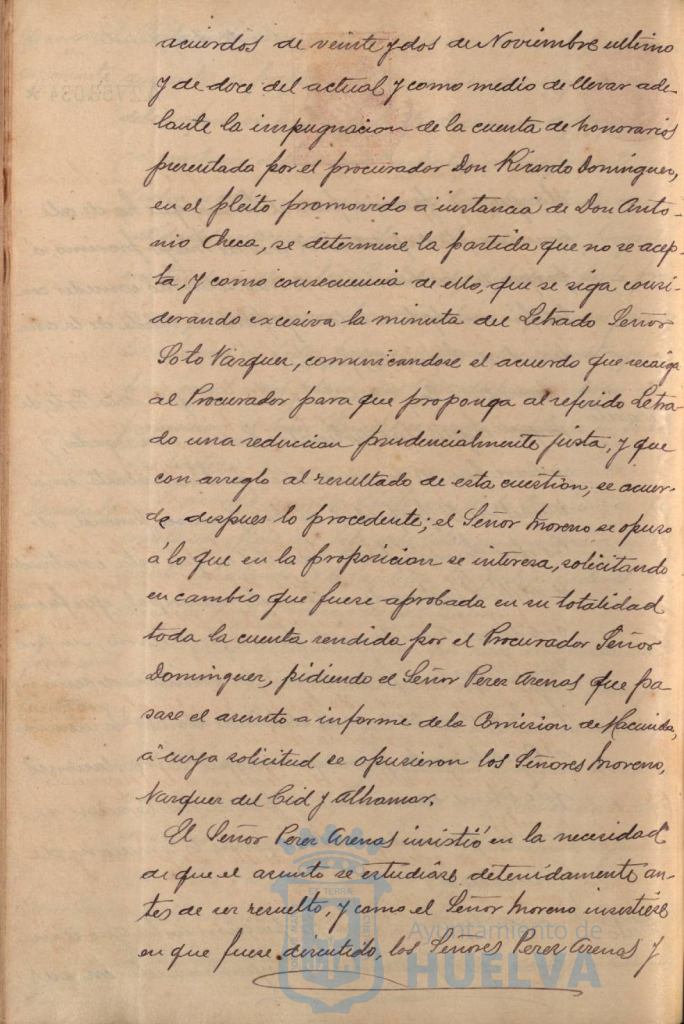 acuerdos de veinte y dos de Noviembre ultimo
y de doce del actual y como medio de llevar ade-
lante la impugnacion de la cuenta de honorarios
presentada por el procurador Don Ricardo Dominguez,
en el pleito promovido á instancia de Don Anto-
nio Checa, se determine la partida que no se acep-
ta, y como consecuencia de ello, que se siga consi-
derando excesiva la minuta del Letrado Señor
Soto Vazquez, comunicandose el acuerdo que recaiga
al Procurador para que proponga al referido Letra-
do una reducion prudencialmente justa, y que
con arreglo al resultado de esta cuestion, se acuer-
de despues lo procedente; el Señor Moreno se opuso
á lo que en la proposicion se interesa, solicitando
en cambio que fuese aprobada en su totalidad
toda la cuenta rendida por el Procurador Señor
Dominguez, pidiendo el Señor Perez Arenas que pa-
sase el asunto a informe de la Comision de Hacienda,
á cuya solicitud se opusieron los Señores Moreno,
Vazquez del Cid y Alhamar.
El Señor Perez Arenas insistió en la necesidad
de que el asunto se estudiase detenidamente an-
tes de ser resuelto, y como el Señor Moreno insistiese
en que fuese discutido, los Señores Perez Arenas y
Ayuntamiento de
HUELVA